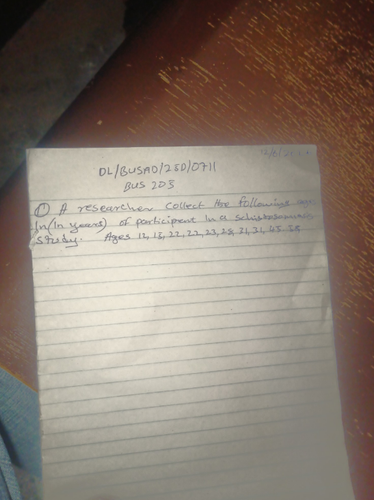 DL/BUSAD/25D/0711
BUS 203
① A researcher collect the following age
In (In years) of participent In a schistosomiasis
study. Ages 12, 13, 22, 22, 23, 25, 31, 31, 45, 58